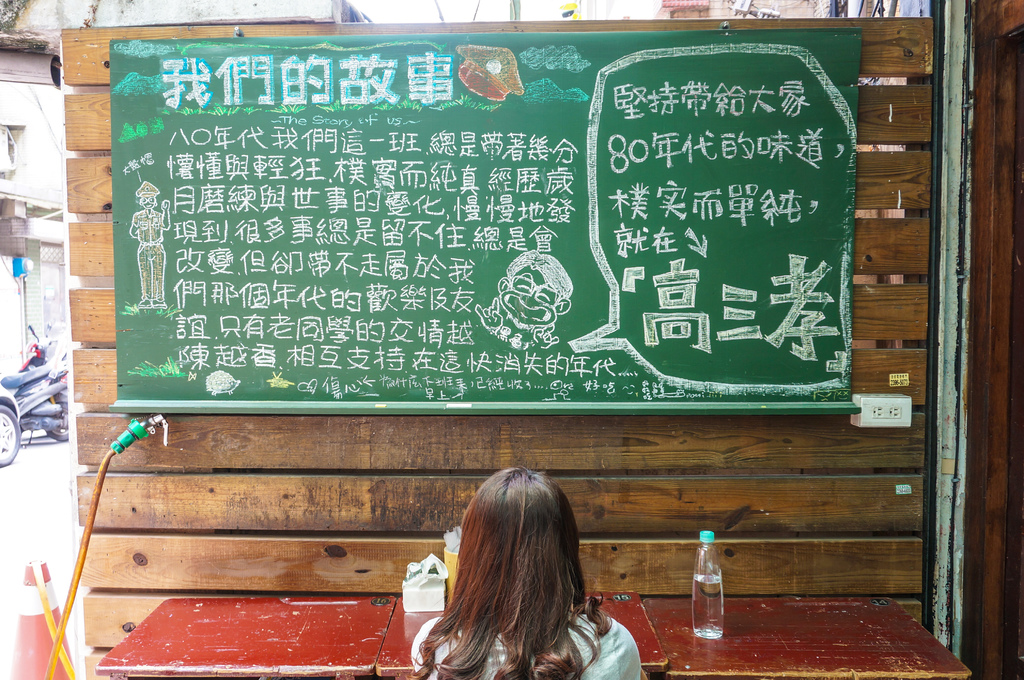 我們的故事
~The Story of us~
八〇年代我們這一班.總是帶著幾分
懵懂與輕狂.樸實而純真.經歷歲
月磨練與世事的變化.慢慢地發
現到很多事總是留不住.總是會
改變.但卻帶不走屬於我
們那個年代的歡樂及友
誼.只有老同學的交情越
陳越香.相互支持.在這快消失的年代....
傷心
好吃
堅持帶給大家
80年代的味道，
樸实而單純，
就在↘
「高三孝」